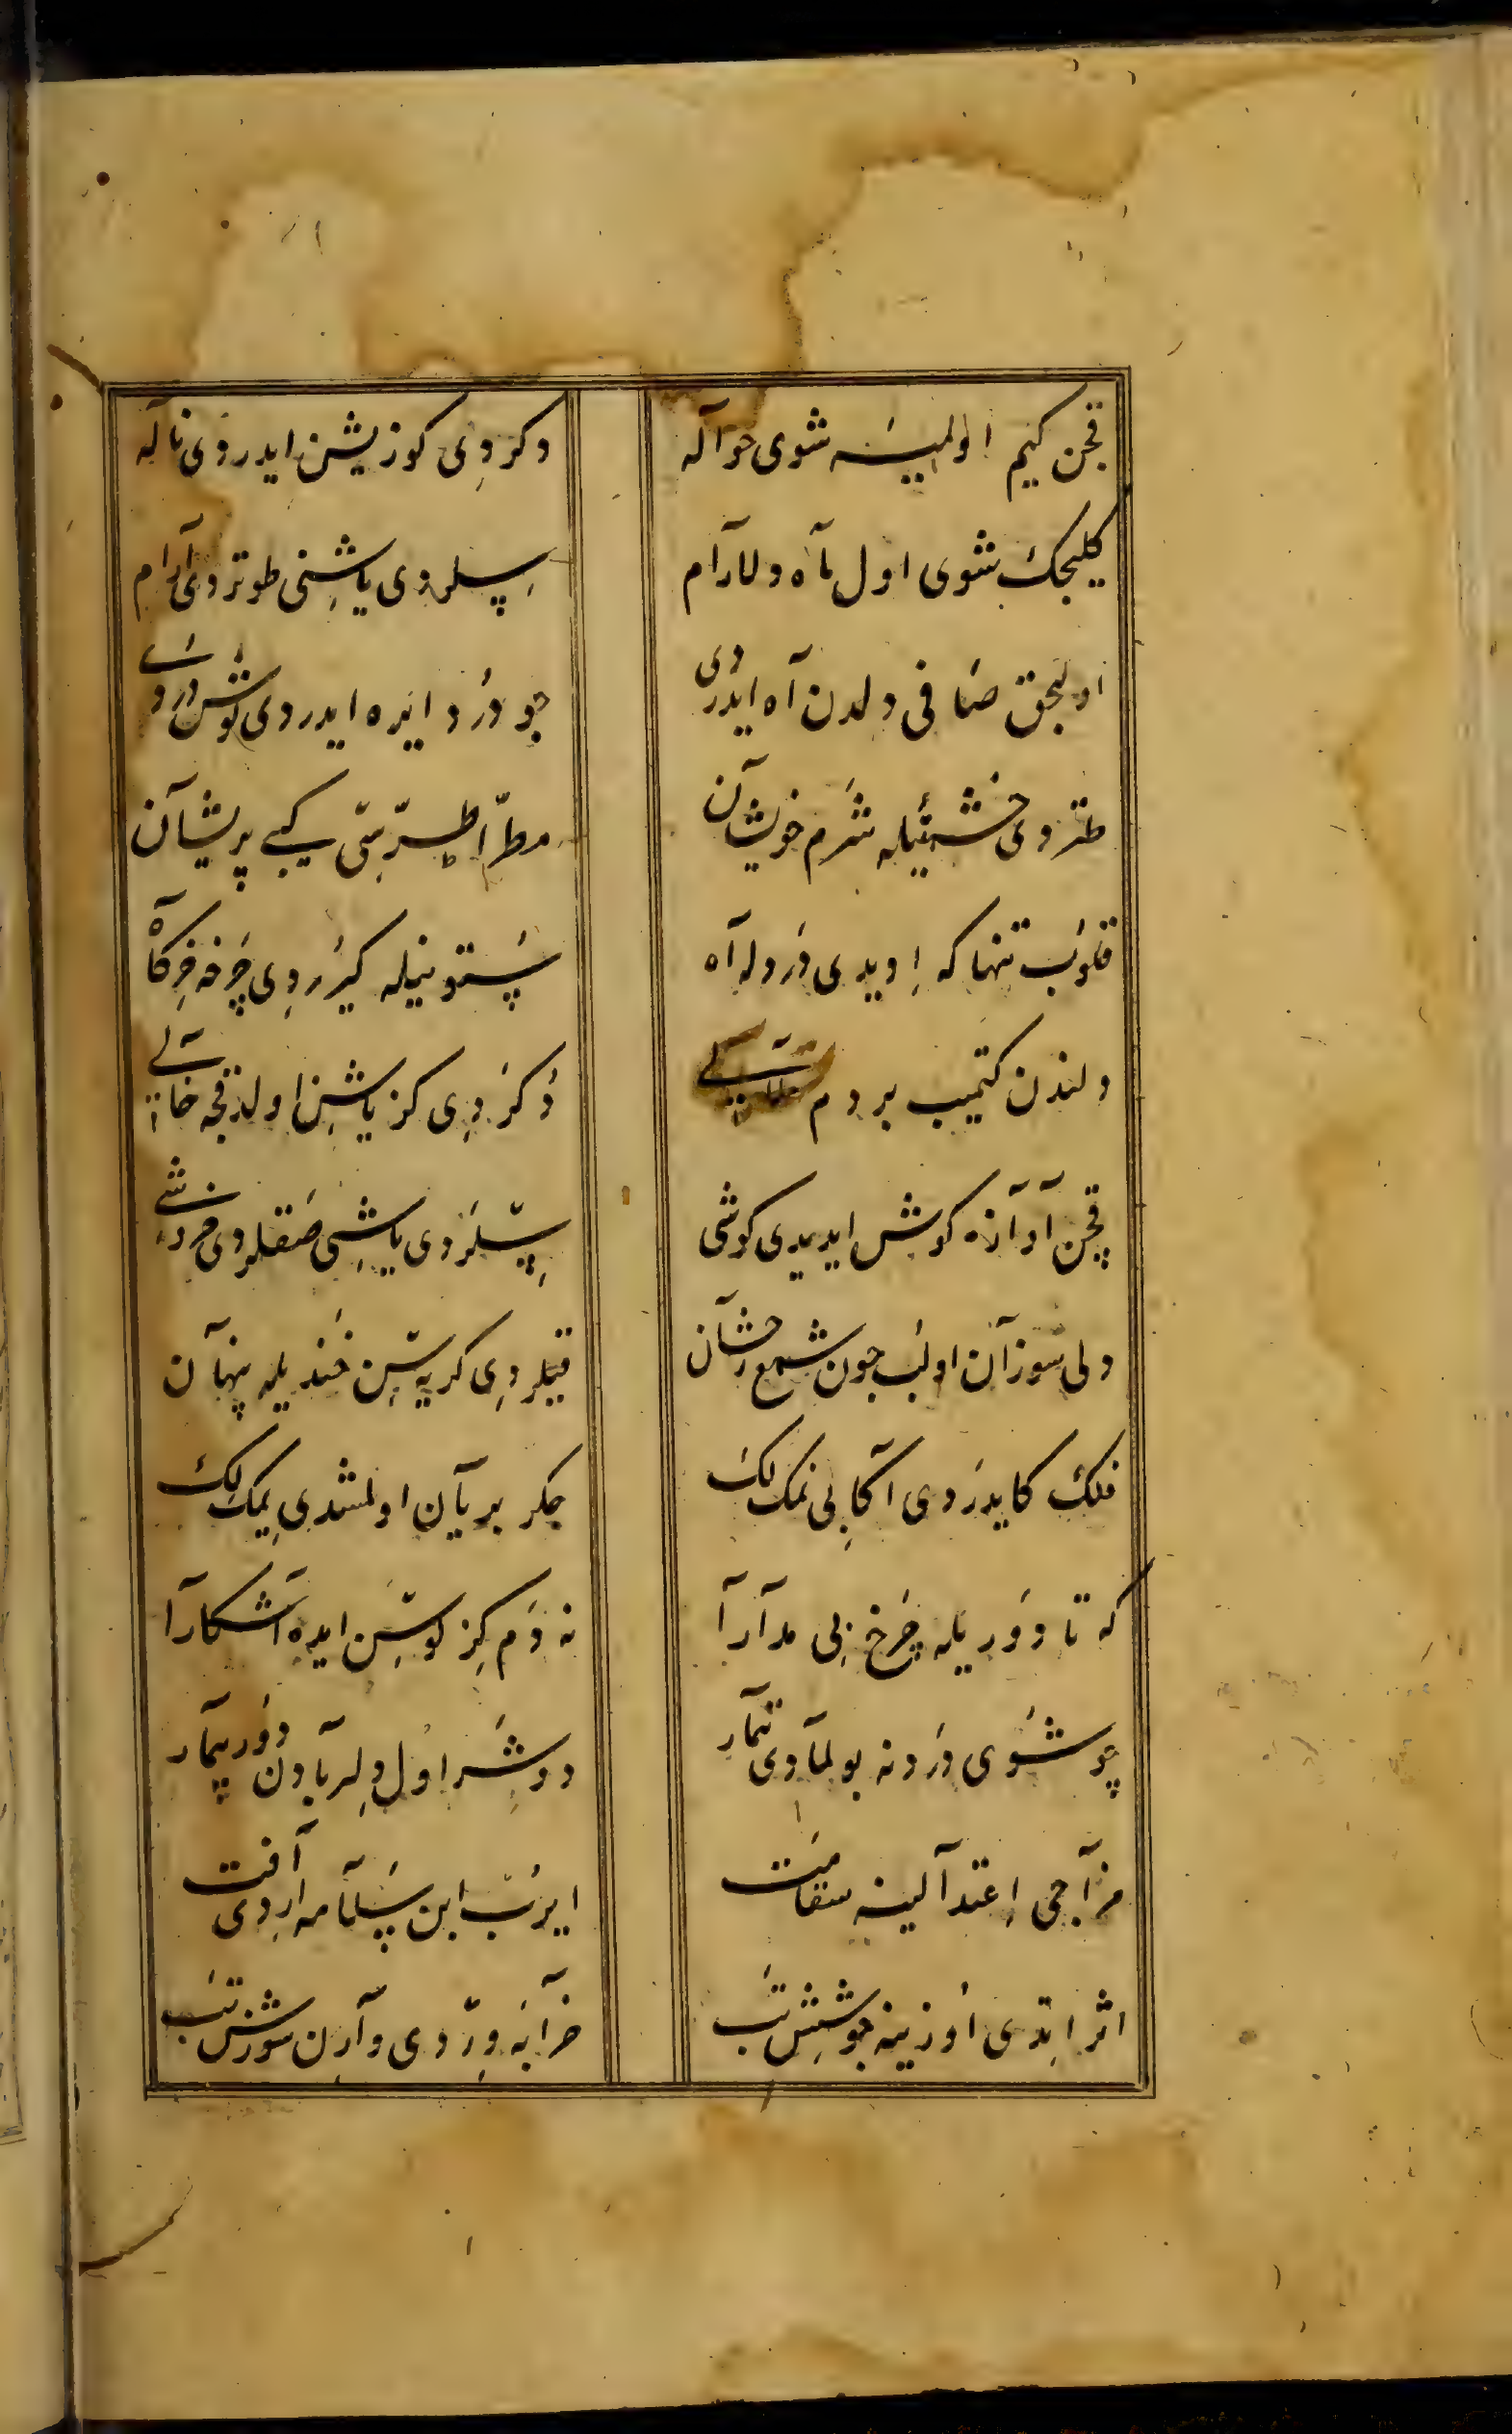 قچن كیم اولمیسه شوی حواله دكردی كوز یشن ایدردی ناله
كلیجك شوی اول ماه دلارام سپلردی یاشنی طوتردی آرام
اولیجق صافی دلدن آه ایدردی
طتردی خشیتیله شرم خویشان مطرّا طرّسی كبی پریشان
قلوب تنها كه ایدیدی درددله آه ستونیله كیرردی چرخه خركاه
دلندن كتمیب بر دم دكردی كز یاشن اولدقجه خالی
قچن آوازه كوش ایدیدی كوشی سپلردی یاشی صقلردی خروشی
ولی سوزان اولب چون شمع رخشان قیلردی كریه‌سن خندیله پنهان
فلك كایدردی آكا بی نمك لك جكر بریان اولمشدی یمك لك
كه تا دوریله چرخ بی مدارا نه دم كز كوسن ایده آشكارا
چو شوی دردنه بولمادی تیمار دوشر اول دلربادن دور بیمار
مزاجی اعتدالینه سقامت ایرب ابن سلامه اردی آفت
اثر ایتدی اوزینه جوشش تب خرابه ویردی وارن سوزش تب